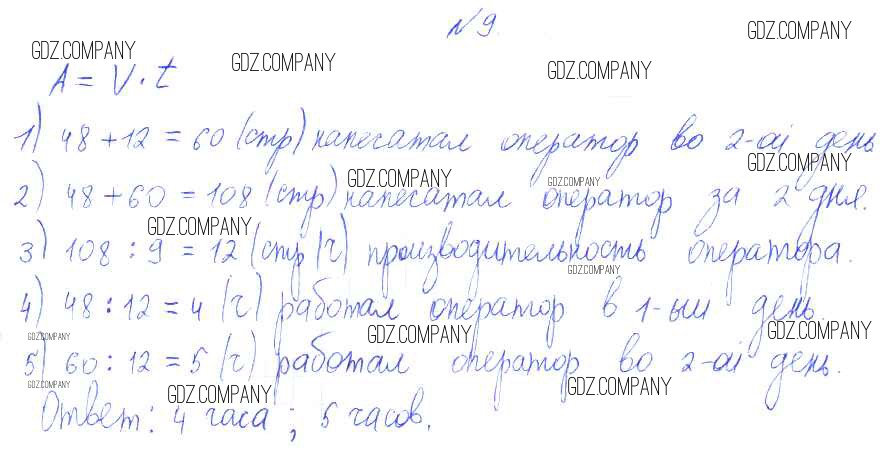 № 9.
GDZ.COMPANY GDZ.COMPANY GDZ.COMPANY GDZ.COMPANY
A = V · t
1) 48 + 12 = 60 (стр) напечатал оператор во 2-ой день
GDZ.COMPANY GDZ.COMPANY GDZ.COMPANY
2) 48 + 60 = 108 (стр) напечатал оператор за 2 дня.
GDZ.COMPANY
3) 108 : 9 = 12 (стр/ч) производительность оператора.
GDZ.COMPANY
4) 48 : 12 = 4 (ч) работал оператор в 1-ый день.
GDZ.COMPANY GDZ.COMPANY GDZ.COMPANY
5) 60 : 12 = 5 (ч) работал оператор во 2-ой день.
GDZ.COMPANY GDZ.COMPANY GDZ.COMPANY
Ответ: 4 часа ; 5 часов.